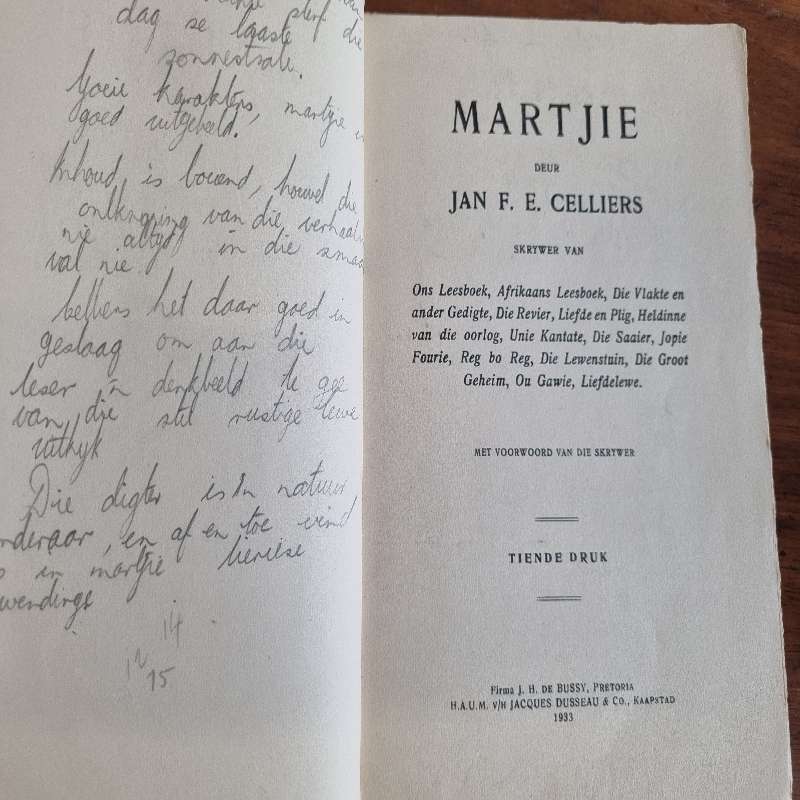 dag se laaste
zonnestrale.
Goeie karakters, martjie
goed uitgebeeld.
Inhoud is boeiend, houvel die
ontknoping van die verhaal
nie altyd in die smaak
val nie.
het daar goed in
geslaag om aan die
leser 'n denkbeeld te gee
van die stil rustige lewe
Die digter is 'n natuur
en af en toe vind
in martjie lieriese
wendings
14
12
15
MARTJIE
DEUR
JAN F. E. CELLIERS
SKRYWER VAN
Ons Leesboek, Afrikaans Leesboek, Die Vlakte en
ander Gedigte, Die Revier, Liefde en Plig, Heldinne
van die oorlog, Unie Kantate, Die Saaier, Jopie
Fourie, Reg bo Reg, Die Lewenstuin, Die Groot
Geheim, Ou Gawie, Liefdelewe.
MET VOORWOORD VAN DIE SKRYWER
TIENDE DRUK
Firma J. H. DE BUSSY, PRETORIA
H.A.U.M. V/H JACQUES DUSSEAU & CO., KAAPSTAD
1933